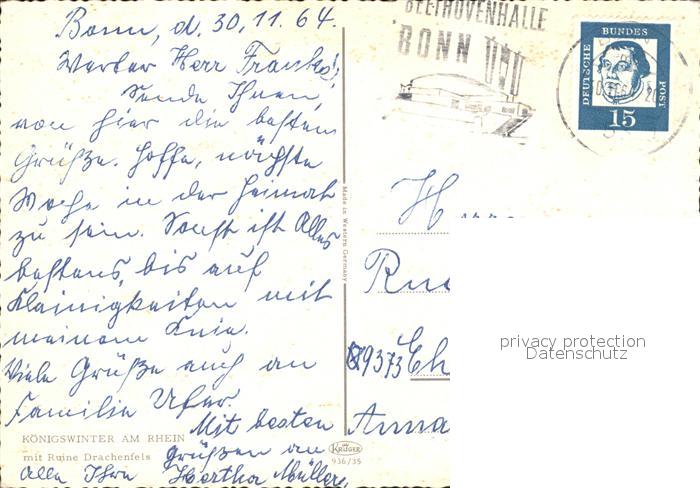 Bonn, d. 30.11.64.
Werter Herr Franke!,
Sende Ihnen,
von hier die besten
Grüße. Hoffe, nächste
Woche in der Heimat
zu sein. Sonst ist Alles
bestens, bis auf
Kleinigkeiten mit
meinem Knie.
Viele Grüße auch an
Familie
Mit besten
Grüßen an
alle Ihre Hertha Müller,
KÖNIGSWINTER AM RHEIN
mit Ruine Drachenfels
KRÜGER
936/35
Made in Western Germany
BEETHOVENHALLE
BONN UND
DEUTSCHE BUNDES POST
15
9373
Anna
privacy protection
Datenschutz